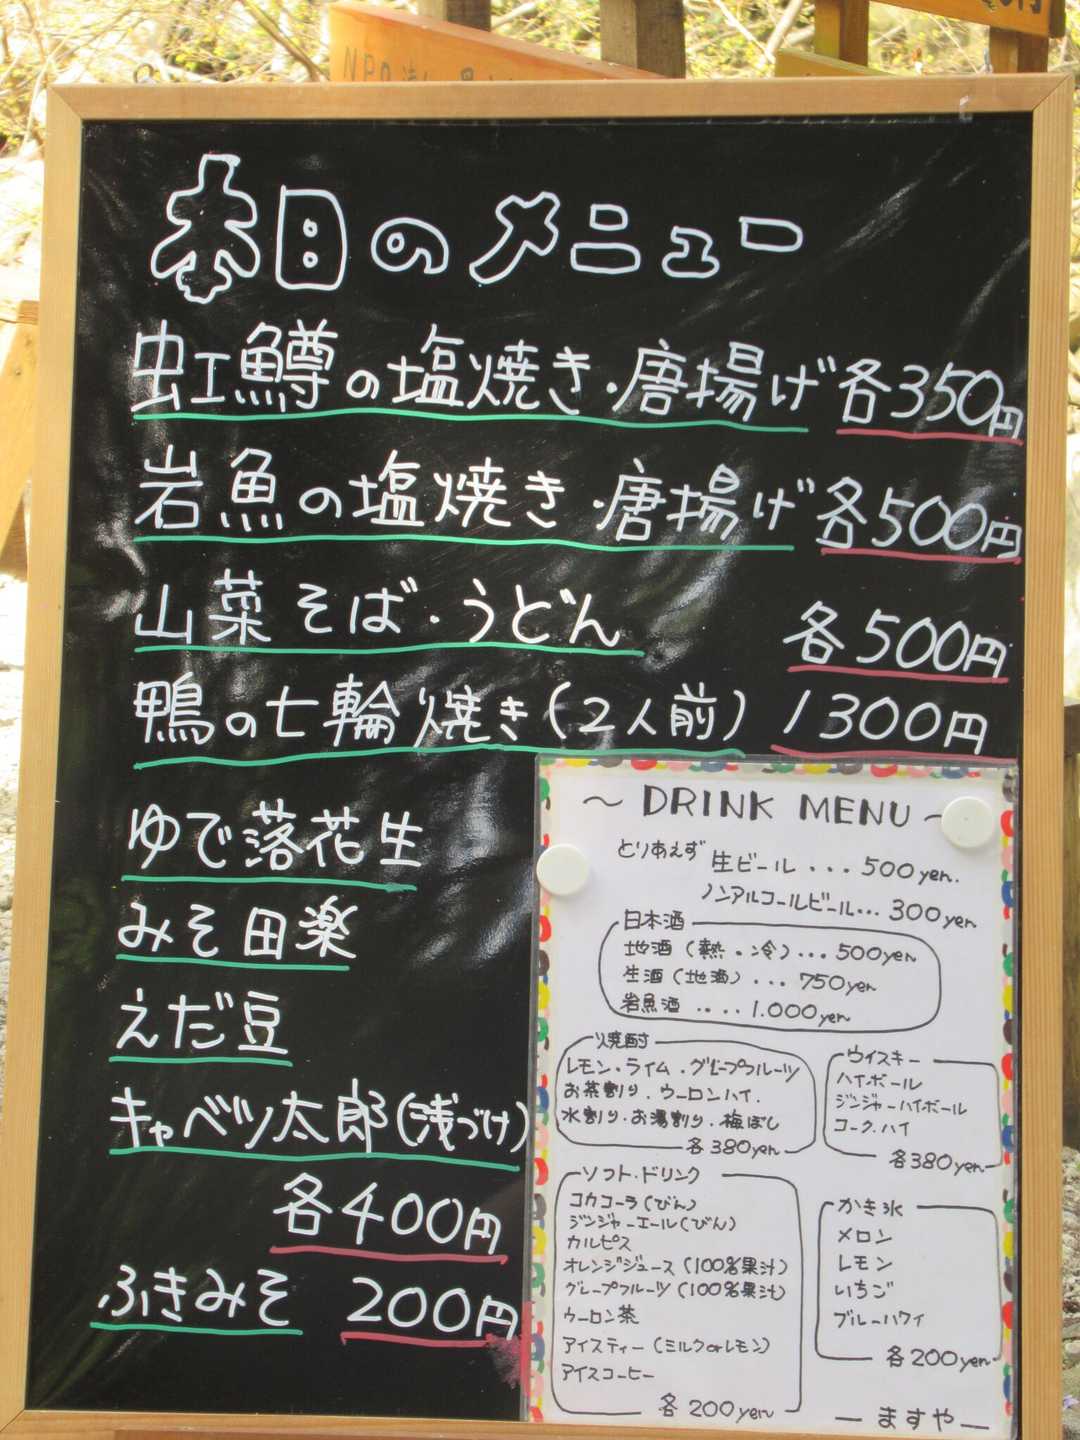 本日のメニュー
虹鱒の塩焼き・唐揚げ 各350円
岩魚の塩焼き・唐揚げ 各500円
山菜そば・うどん 各500円
鴨の七輪焼き(2人前) 1300円
ゆで落花生
みそ田楽
えだ豆
キャベツ太郎(浅づけ)
各400円
ふきみそ 200円
～ DRINK MENU ～
とりあえず 生ビール ... 500yen.
ノンアルコールビール... 300yen
日本酒
地酒(熱・冷)... 500yen
生酒(地酒)... 750yen
岩魚酒 .... 1.000yen
焼酎
レモン・ライム・グレープフルーツ
お茶割り.ウーロンハイ.
水割り・お湯割り・梅ぼし
各380yen
ウイスキー
ハイボール
ジンジャーハイボール
コーク.ハイ
各380yen
ソフト・ドリンク
コカコーラ(びん)
ジンジャーエール(びん)
カルピス
オレンジジュース(100%果汁)
グレープフルーツ(100%果汁)
ウーロン茶
アイスティー(ミルクorレモン)
アイスコーヒー
各200yen
かき氷
メロン
レモン
いちご
ブルーハワイ
各200yen
— ますや —